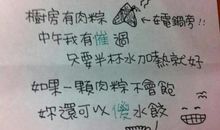 廚房有肉粽 在電鍋旁!!
中午我有催過
只要半杯水加熱就好
如果一顆肉粽不會飽
妳還可以傻水餃